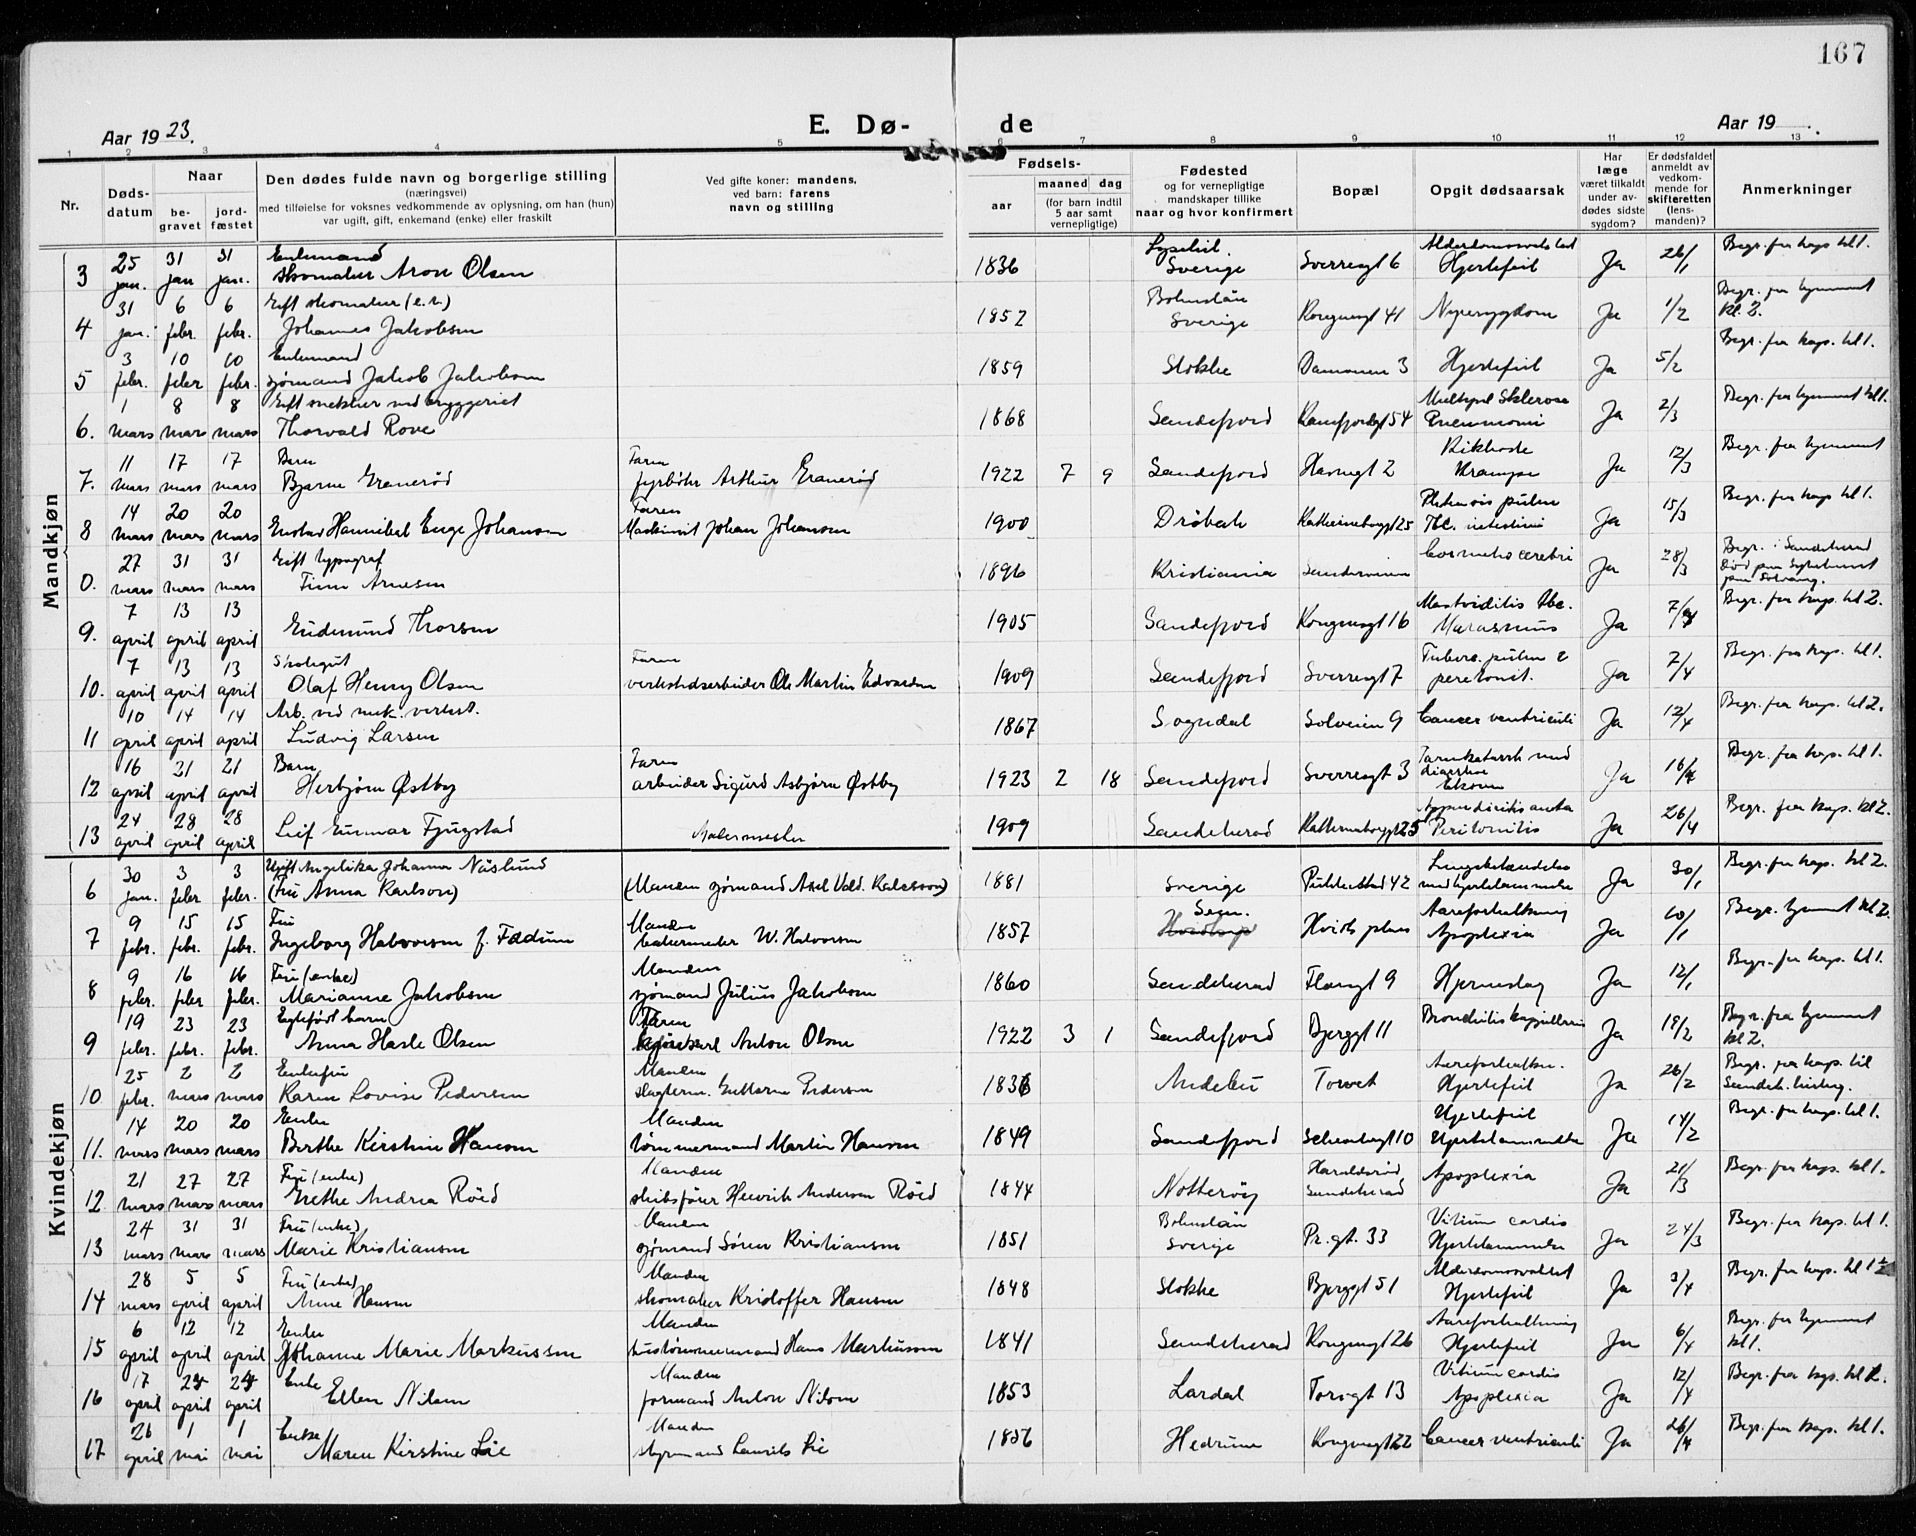 167
Aar 1923.
E. Dø-
de
Aar 19 .
1 2 3 4 5 6 7 8 9 10 11 12 13
Nr.
Døds-
datum
Naar
be-
gravet
jord-
fæstet
Den dødes fulde navn og borgerlige stilling
(næringsvei)
med tilføielse for voksnes vedkommende av oplysning, om han (hun)
var ugift, gift, enkemand (enke) eller fraskilt
Ved gifte koner: mandens,
ved barn: farens
navn og stilling
Fødsels-
aar
maaned dag
(for barn indtil
5 aar samt
vernepligtige)
Fødested
og for vernepligtige
mandskaper tillike
naar og hvor konfirmert
Bopæl
Opgit dødsaarsak
Har
læge
været tilkaldt
under av-
dødes sidste
sygdom?
Er dødsfaldet
anmeldt av
vedkom-
mende for
skifteretten
(lens-
manden)?
Anmerkninger
Mandkjøn
3 25 jan. 31 jan 31 jan. Enkemand
skomaker Aron Olsen 1836 Sverige Sverresgt 6 Hjertefeil Ja 26/1 Begr. fra kap. kl 1.
4 31 jan. 6 febr. 6 febr. Gift skomaker (e.v.)
Johannes Jakobsen 1852 Bohuslän
Sverige Kongensgt 41 Nyresygdom Ja 1/2 Begr. fra hjemmet
kl. 2.
5 3 febr. 10 febr 10 febr. Enkemand
sjømand Jakob Jakobsen 1859 Stokke Dammen 3 Hjertefeil Ja 5/2 Begr. fra kap. kl 1.
6. 1 mars 8 mars 8 mars Gift snekker ved bryggeriet
Thorvald Rove 1868 Sandefjord Ranfjordgt 54 Multipel Sklerose
Pneumoni Ja 2/3 Begr. fra hjemmet kl 1.
7. 11 mars 17 mars 17 mars Barn
Bjarne Granerød Faren
fyrbøter Arthur Granerød 1922 7 9 Sandefjord Havnegt 2 Kikhoste
Krampe Ja 12/3 Begr. fra hjemmet
8 14 mars 20 mars 20 mars Hannibal Enge Johansen Faren
Maskinist Johan Johansen 1900 Drøbak Katherineborggt 25 Phthisis pulm
Tbc. intestini Ja 15/3 Begr. fra kap kl 1.
0. 27 mars 31 mars 31 mars Gift typograf
Finn Arnesen 1896 Kristiania cerebri Ja 28/3 Begr. i Sandeherad
9. 7 april 13 april 13 april Gudmund Thorsen 1905 Sandefjord Kongensgt 16 Mastoiditis tbc.
Marasmus Ja 7/4 Begr. fra kap. kl 2.
10. 7 april 13 april 13 april Skolegut
Olaf Henry Olsen Faren
verkstedsarbeider Ole Martin Edvardsen 1909 Sandefjord Sverresgt 7 Tuberc. pulm &
peritonit. Ja 7/4 Begr. fra kap. kl 1.
11 10 april 14 april 14 april Arb. ved mek. verkst.
Ludvig Larsen 1867 Sogndal Solveien 9 Cancer ventriculi Ja 12/4 Begr. fra kap. kl 2.
12 16 april 21 april 21 april Barn
Herbjørn Østby Faren
arbeider Sigurd Asbjørn Østby 1923 2 18 Sandefjord Sverresgt 3 Tarmkatarrh med
diarrhoe Ja 16/4 Begr. fra kap. kl 1.
13 24 april 28 april 28 april Leif Gunnar Fjugstad Malermester 1909 Sandeherad Katherineborggt 25 Appendicitis acuta
Peritonitis Ja 26/4 Begr. fra kap. kl 2.
Kvindekjøn
6 30 jan. 3 febr 3 febr. Ugift Angelika Johanna Näslund
(Fru Anna Karlson) (Manden sjømand Axel Vald. Karlsson) 1881 Sverige Pukkestad 42 Lungebetændelse
med hjertelammelse Ja 30/1 Begr. fra kap. kl 2.
7 9 febr. 15 febr. 15 febr. Fru
Ingeborg Halvorsen f. Fadum Manden
W. Halvorsen 1857 Sem. Hvidts plass Aareforkalkning
Apoplexia Ja 10/1 Begr. hjemmet kl 2.
8 9 febr. 16 febr 16 febr. Fru (enke)
Marianne Jakobsen Manden
sjømand Julius Jakobsen 1860 Sandeherad Flaugt 9 Hjerneslag Ja 12/1 Begr. fra kap. kl 1.
9 19 febr. 23 febr. 23 febr. Egtefødt barn
Anna Hasle Olsen Faren
Anton Olsen 1922 3 1 Sandefjord Bjerggt 11 Bronchitis kapillaris Ja 19/2 Begr. fra hjemmet
kl 2.
10 25 febr. 2 mars 2 mars Enkefru
Karen Lovise Pedersen Manden
slagterm. Guttorm Pedersen 1836 Andebu Torvet Aareforkalkn.
Hjertefeil Ja 26/2 Begr. fra kap. til
Sandeh. kirkeg.
11. 14 mars 20 mars 20 mars Enke
Berthe Kirstine Hansen Manden
tømmermand Martin Hansen 1849 Sandefjord Schanchegt 10 Hjertefeil
Hjertelammelse Ja 14/2 Begr. fra kap. kl 1.
12 21 mars 27 mars 27 mars Fru (enke)
Grethe Andrea Röed Manden
skibsfører Henrik Andersen Röed 1844 Nøtterøy Haraldsrød
Sandeherad Apoplexia Ja 21/3 Begr. fra kap. kl 1.
13 24 mars 31 mars 31 mars Fru (enke)
Marie Kristiansen Manden
sjømand Søren Kristiansen 1851 Bohuslän
Sverige Pr.gt. 33 Vitium cordis
Hjertelammelse Ja 24/3 Begr. fra kap. kl 1.
14 28 mars 5 april 5 april Fru (enke)
Anne Hansen Manden
skomaker Kristoffer Hansen 1848 Stokke Bjerggt 51 Alderdomssvakhet
Hjertefeil Ja 3/4 Begr. fra kap. kl 1½
15 6 april 12 april 12 april Enke
Johanne Marie Markussen Manden
hustømmermand Hans Markussen 1841 Sandeherad Kongensgt 26 Aareforkalkning
Hjertefeil Ja 6/4 Begr. fra hjemmet
kl 1.
16 17 april 24 april 24 april Enke
Ellen Nilsen Manden
formand Anton Nilsen 1853 Lardal Torsgt 13 Vitium cordis
Apoplexia Ja 12/4 Begr. fra kap. kl 2.
17 26 april 1 mai 1 mai Enke
Maren Kirstine Lie Manden
styrmand Laurits Lie 1856 Hedrum Kongensgt 22 Cancer ventriculi Ja 26/4 Begr. fra kap. kl 1.